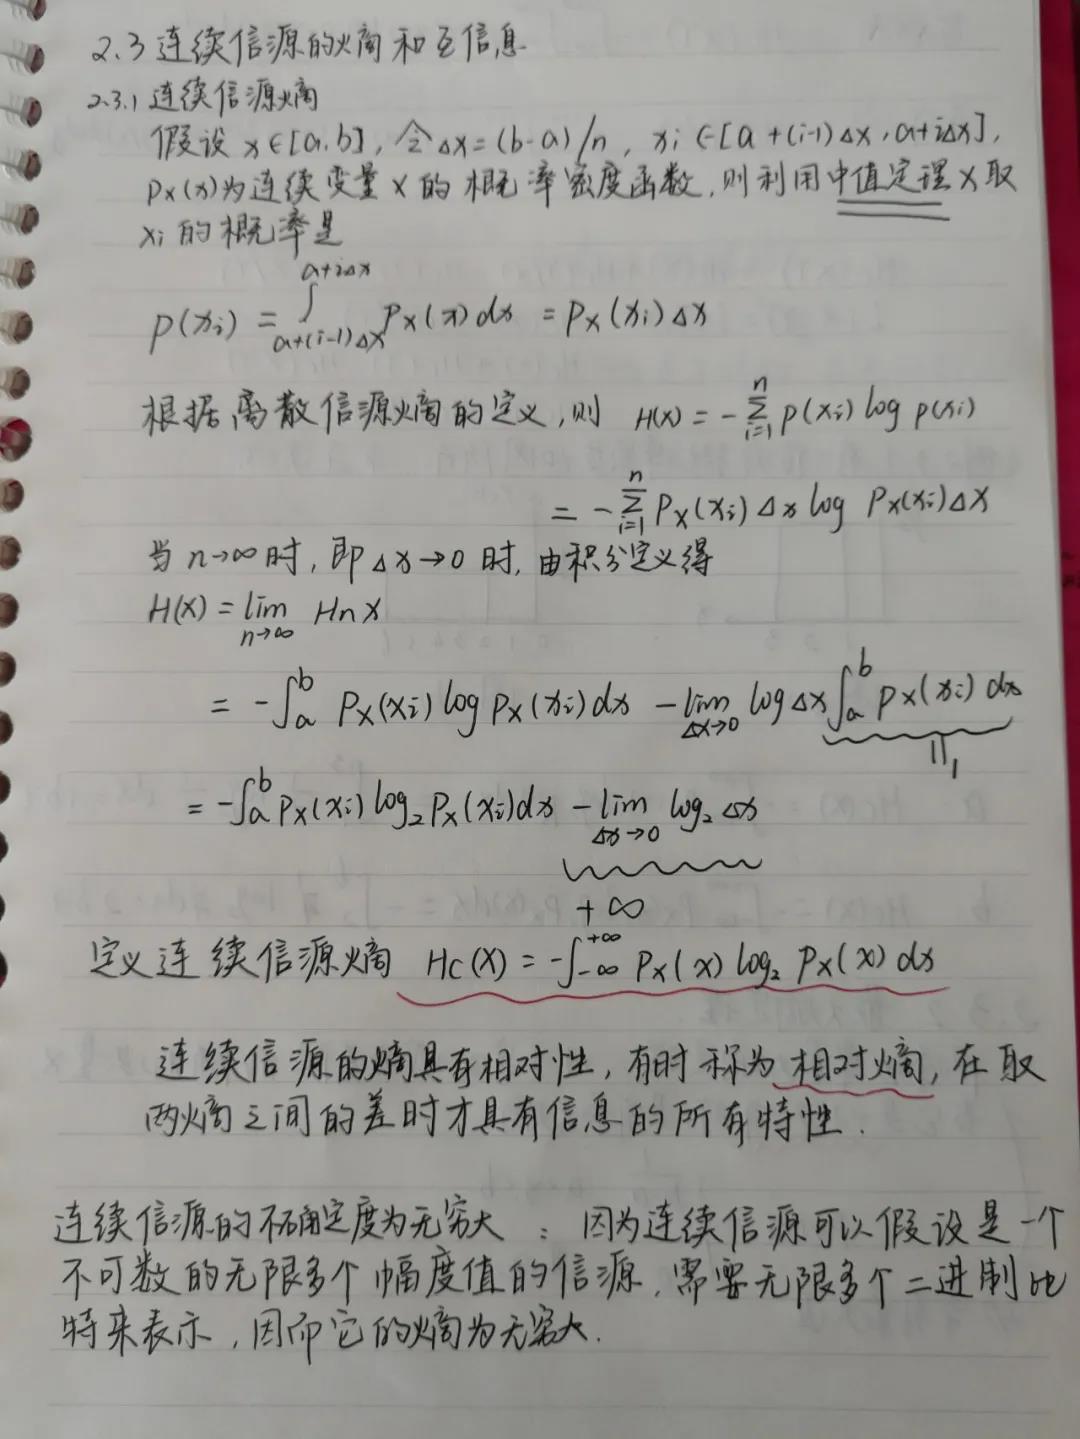 2.3 连续信源的熵和互信息
2.3.1 连续信源熵
假设 x∈[a,b], 令 Δx=(b-a)/n, xi∈[a+(i-1)Δx, a+iΔx],
Px(x)为连续变量X的概率密度函数,则利用中值定理X取
xi的概率是
p(xi) = ∫_{a+(i-1)Δx}^{a+iΔx} Px(x)dx = Px(xi)Δx
根据离散信源熵的定义,则 H(X) = -∑_{i=1}^{n} p(xi) log p(xi)
= -∑_{i=1}^{n} Px(xi)Δx log Px(xi)Δx
当 n→∞ 时, 即 Δx→0 时, 由积分定义得
H(X) = lim_{n→∞} HnX
= -∫_a^b Px(xi) log Px(xi)dx - lim_{Δx→0} log Δx ∫_a^b Px(xi) dx
||1
= -∫_a^b Px(xi) log₂ Px(xi)dx - lim_{Δx→0} log₂ Δx
+∞
定义连续信源熵 Hc(X) = -∫_{-∞}^{+∞} Px(x) log₂ Px(x) dx
连续信源的熵具有相对性,有时称为相对熵,在取
两熵之间的差时才具有信息的所有特性.
连续信源的不确定度为无穷大: 因为连续信源可以假设是一个
不可数的无限多个幅度值的信源,需要无限多个二进制比
特来表示,因而它的熵为无穷大.